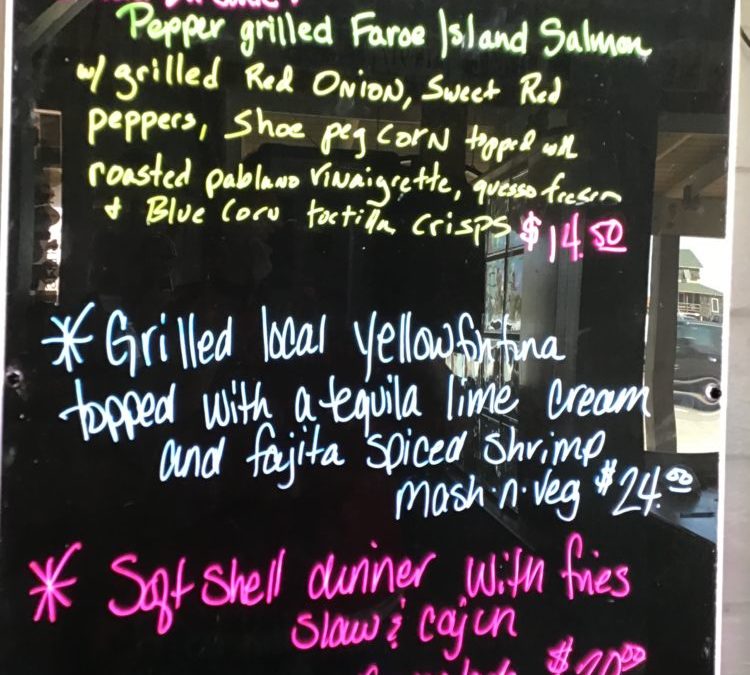 Pepper grilled Faroe Island Salmon
w/ grilled Red ONION, Sweet Red
peppers, Shoe peg CORN topped with
roasted pablano Vinaigrette, quesso fresco
& Blue Corn tortilla CRISPS $14.50
* Grilled local yellowfin tuna
topped with a tequila lime cream
and fajita spiced shrimp
mash-n-veg $24.00
* Soft shell dinner with fries
slaw & cajun
$20.00